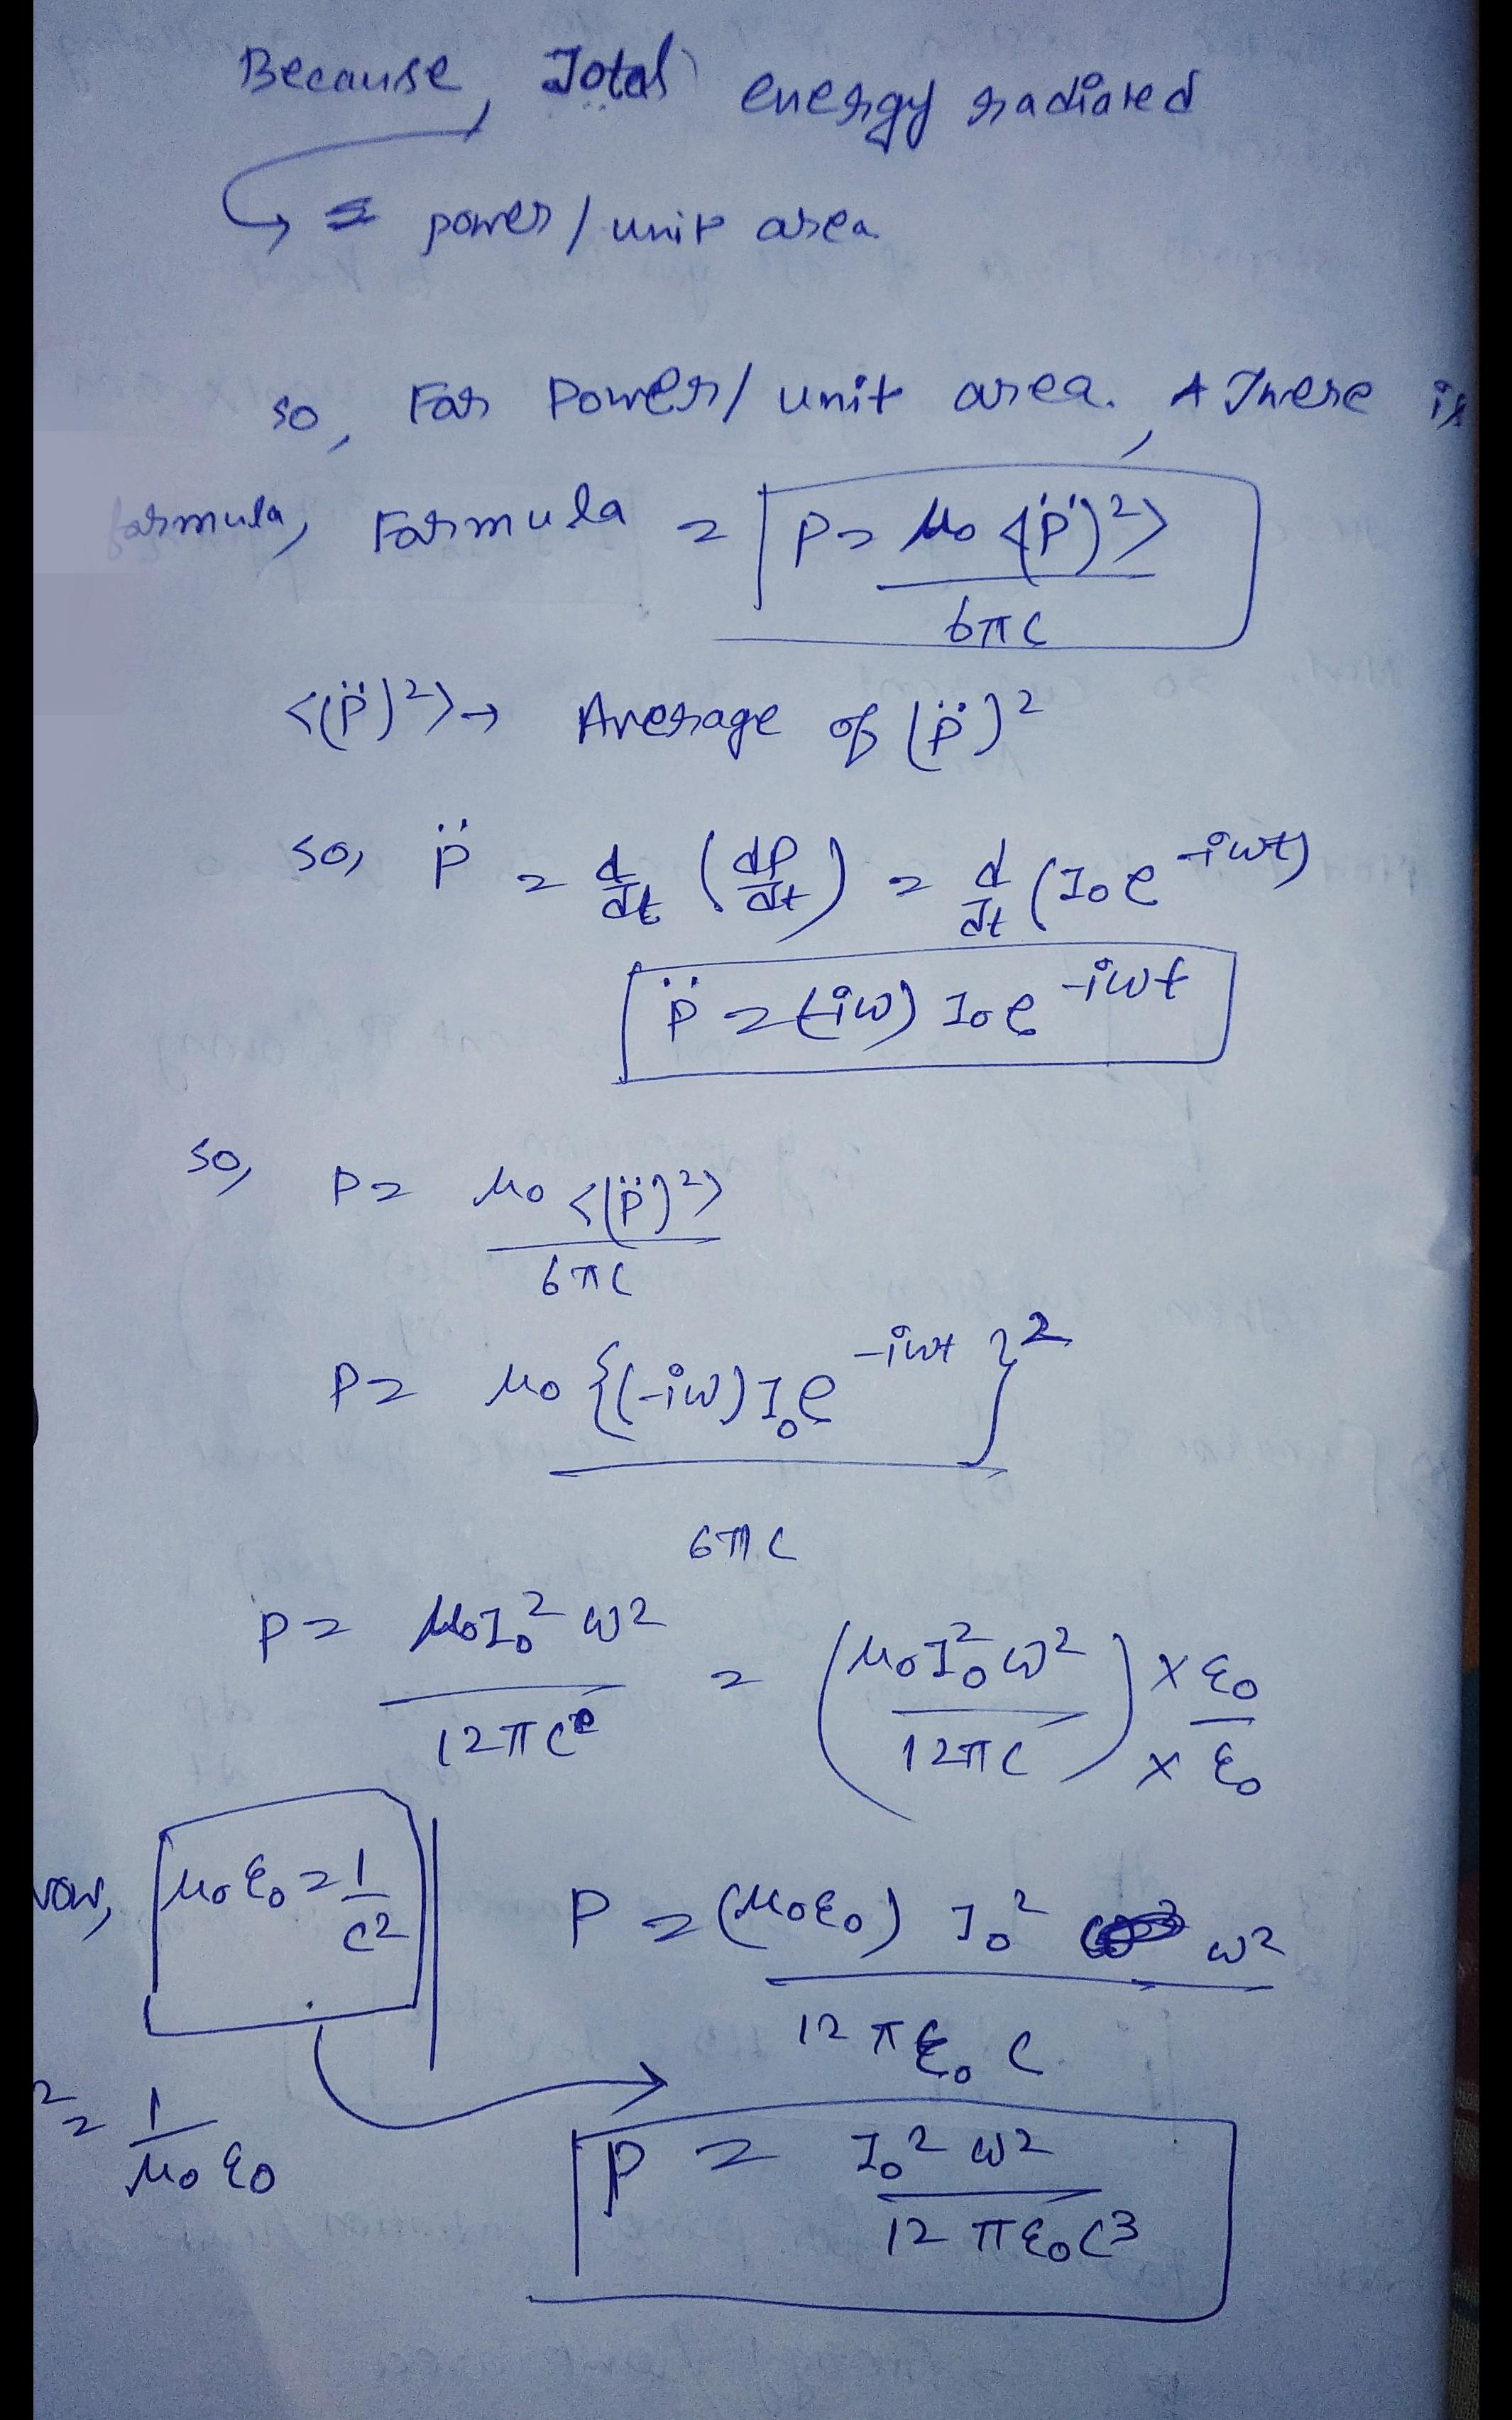 Because, Total energy radiated
= power / unit area
so, For Power / unit area, There is
formula, Formula = P = μ₀ <(p̈)²> / 6πc
<(p̈)²> → Average of (p̈)²
so, p̈ = d/dt (dp/dt) = d/dt (I₀ e^-iωt)
p̈ = (-iω) I₀ e^-iωt
so, P = μ₀ <(p̈)²> / 6πc
P = μ₀ {(-iω) I₀ e^-iωt}² / 6πc
P = μ₀ I₀² ω² / 12πc = (μ₀ I₀² ω² / 12πc) × ε₀ / × ε₀
now, μ₀ε₀ = 1/c²
P = (μ₀ε₀) I₀² ω² / 12πε₀ c
² = 1/μ₀ε₀
P = I₀² ω² / 12πε₀c³